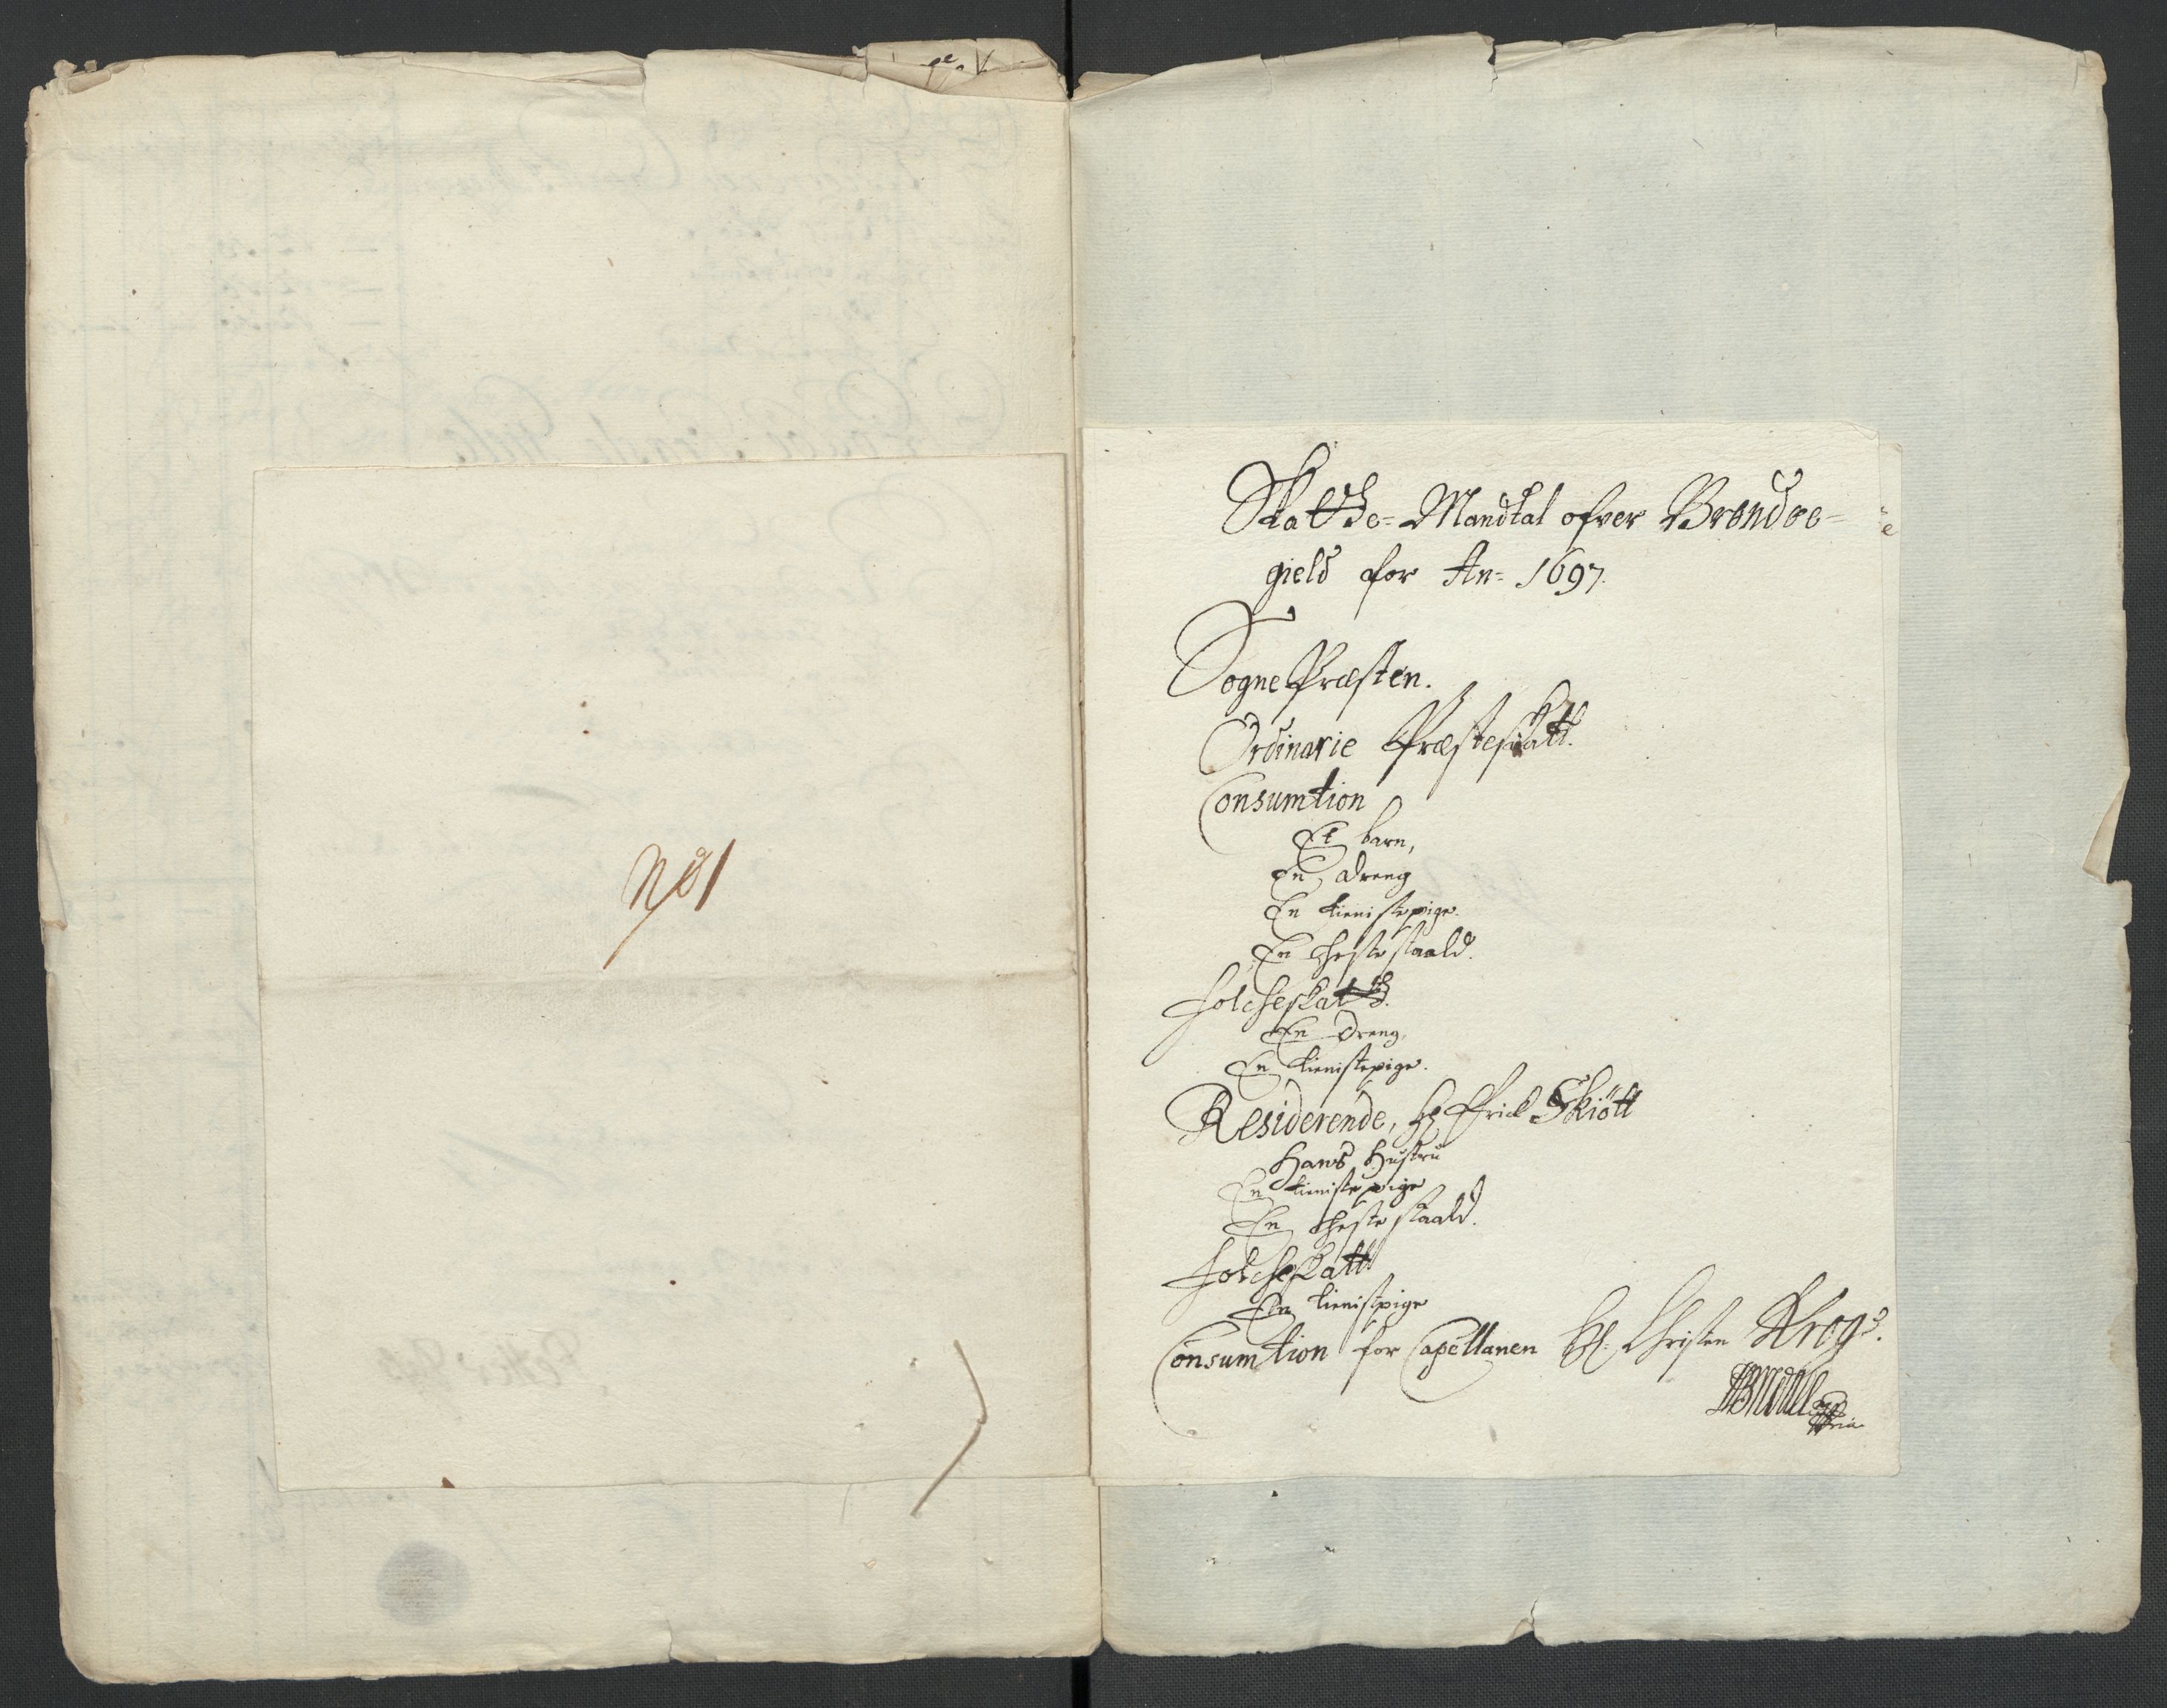 No 1
Skatte= Mandtal ofver Brøndøe=
gield for An= 1697.
Sogne Præsten.
Ordinarie Præsteskatt.
Consumtion
Et barn,
En dreng
En tienistepige.
En Hestestaald.
Folcheskatt.
En dreng,
En tienistepige.
Residerende, Hr Frid Skiött
Hans Hustru
En tienistepige
En Hestestaald.
Folcheskatt
En tienistpige
Consumtion for Capellanen Hr. Christen Krog.